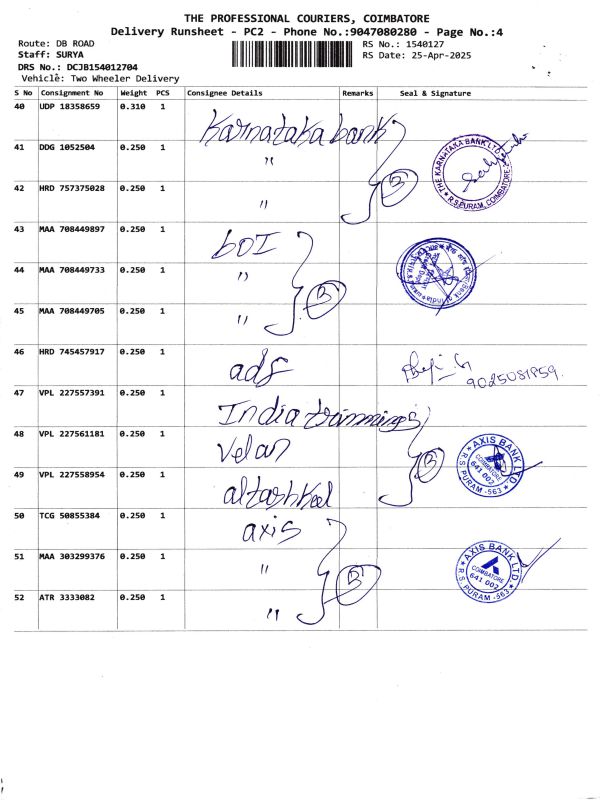 THE PROFESSIONAL COURIERS, COIMBATORE
Delivery Runsheet - PC2 - Phone No.:9047080280 - Page No.:4
Route: DB ROAD
RS No.: 1540127
Staff: SURYA
RS Date: 25-Apr-2025
DRS No.: DCJB154012704
Vehicle: Two Wheeler Delivery
S No Consignment No Weight PCS Consignee Details Remarks Seal & Signature
40 UDP 18358659 0.310 1 Karnataka bank
41 DDG 1052504 0.250 1 "
THE KARNATAKA BANK LTD. R.S.PURAM, COIMBATORE
42 HRD 757375028 0.250 1 " 3
43 MAA 708449897 0.250 1 BOI
44 MAA 708449733 0.250 1 " 3
45 MAA 708449705 0.250 1 "
46 HRD 745457917 0.250 1 ads
9025081959.
47 VPL 227557391 0.250 1 India trimmings
48 VPL 227561181 0.250 1 Velan 3
AXIS BANK LTD COIMBATORE 641 002 R.S. PURAM -563
49 VPL 227558954 0.250 1
50 TCG 50855384 0.250 1 axis
51 MAA 303299376 0.250 1 " 3
AXIS BANK LTD COIMBATORE 641 002 R.S. PURAM -563
52 ATR 3333082 0.250 1 "